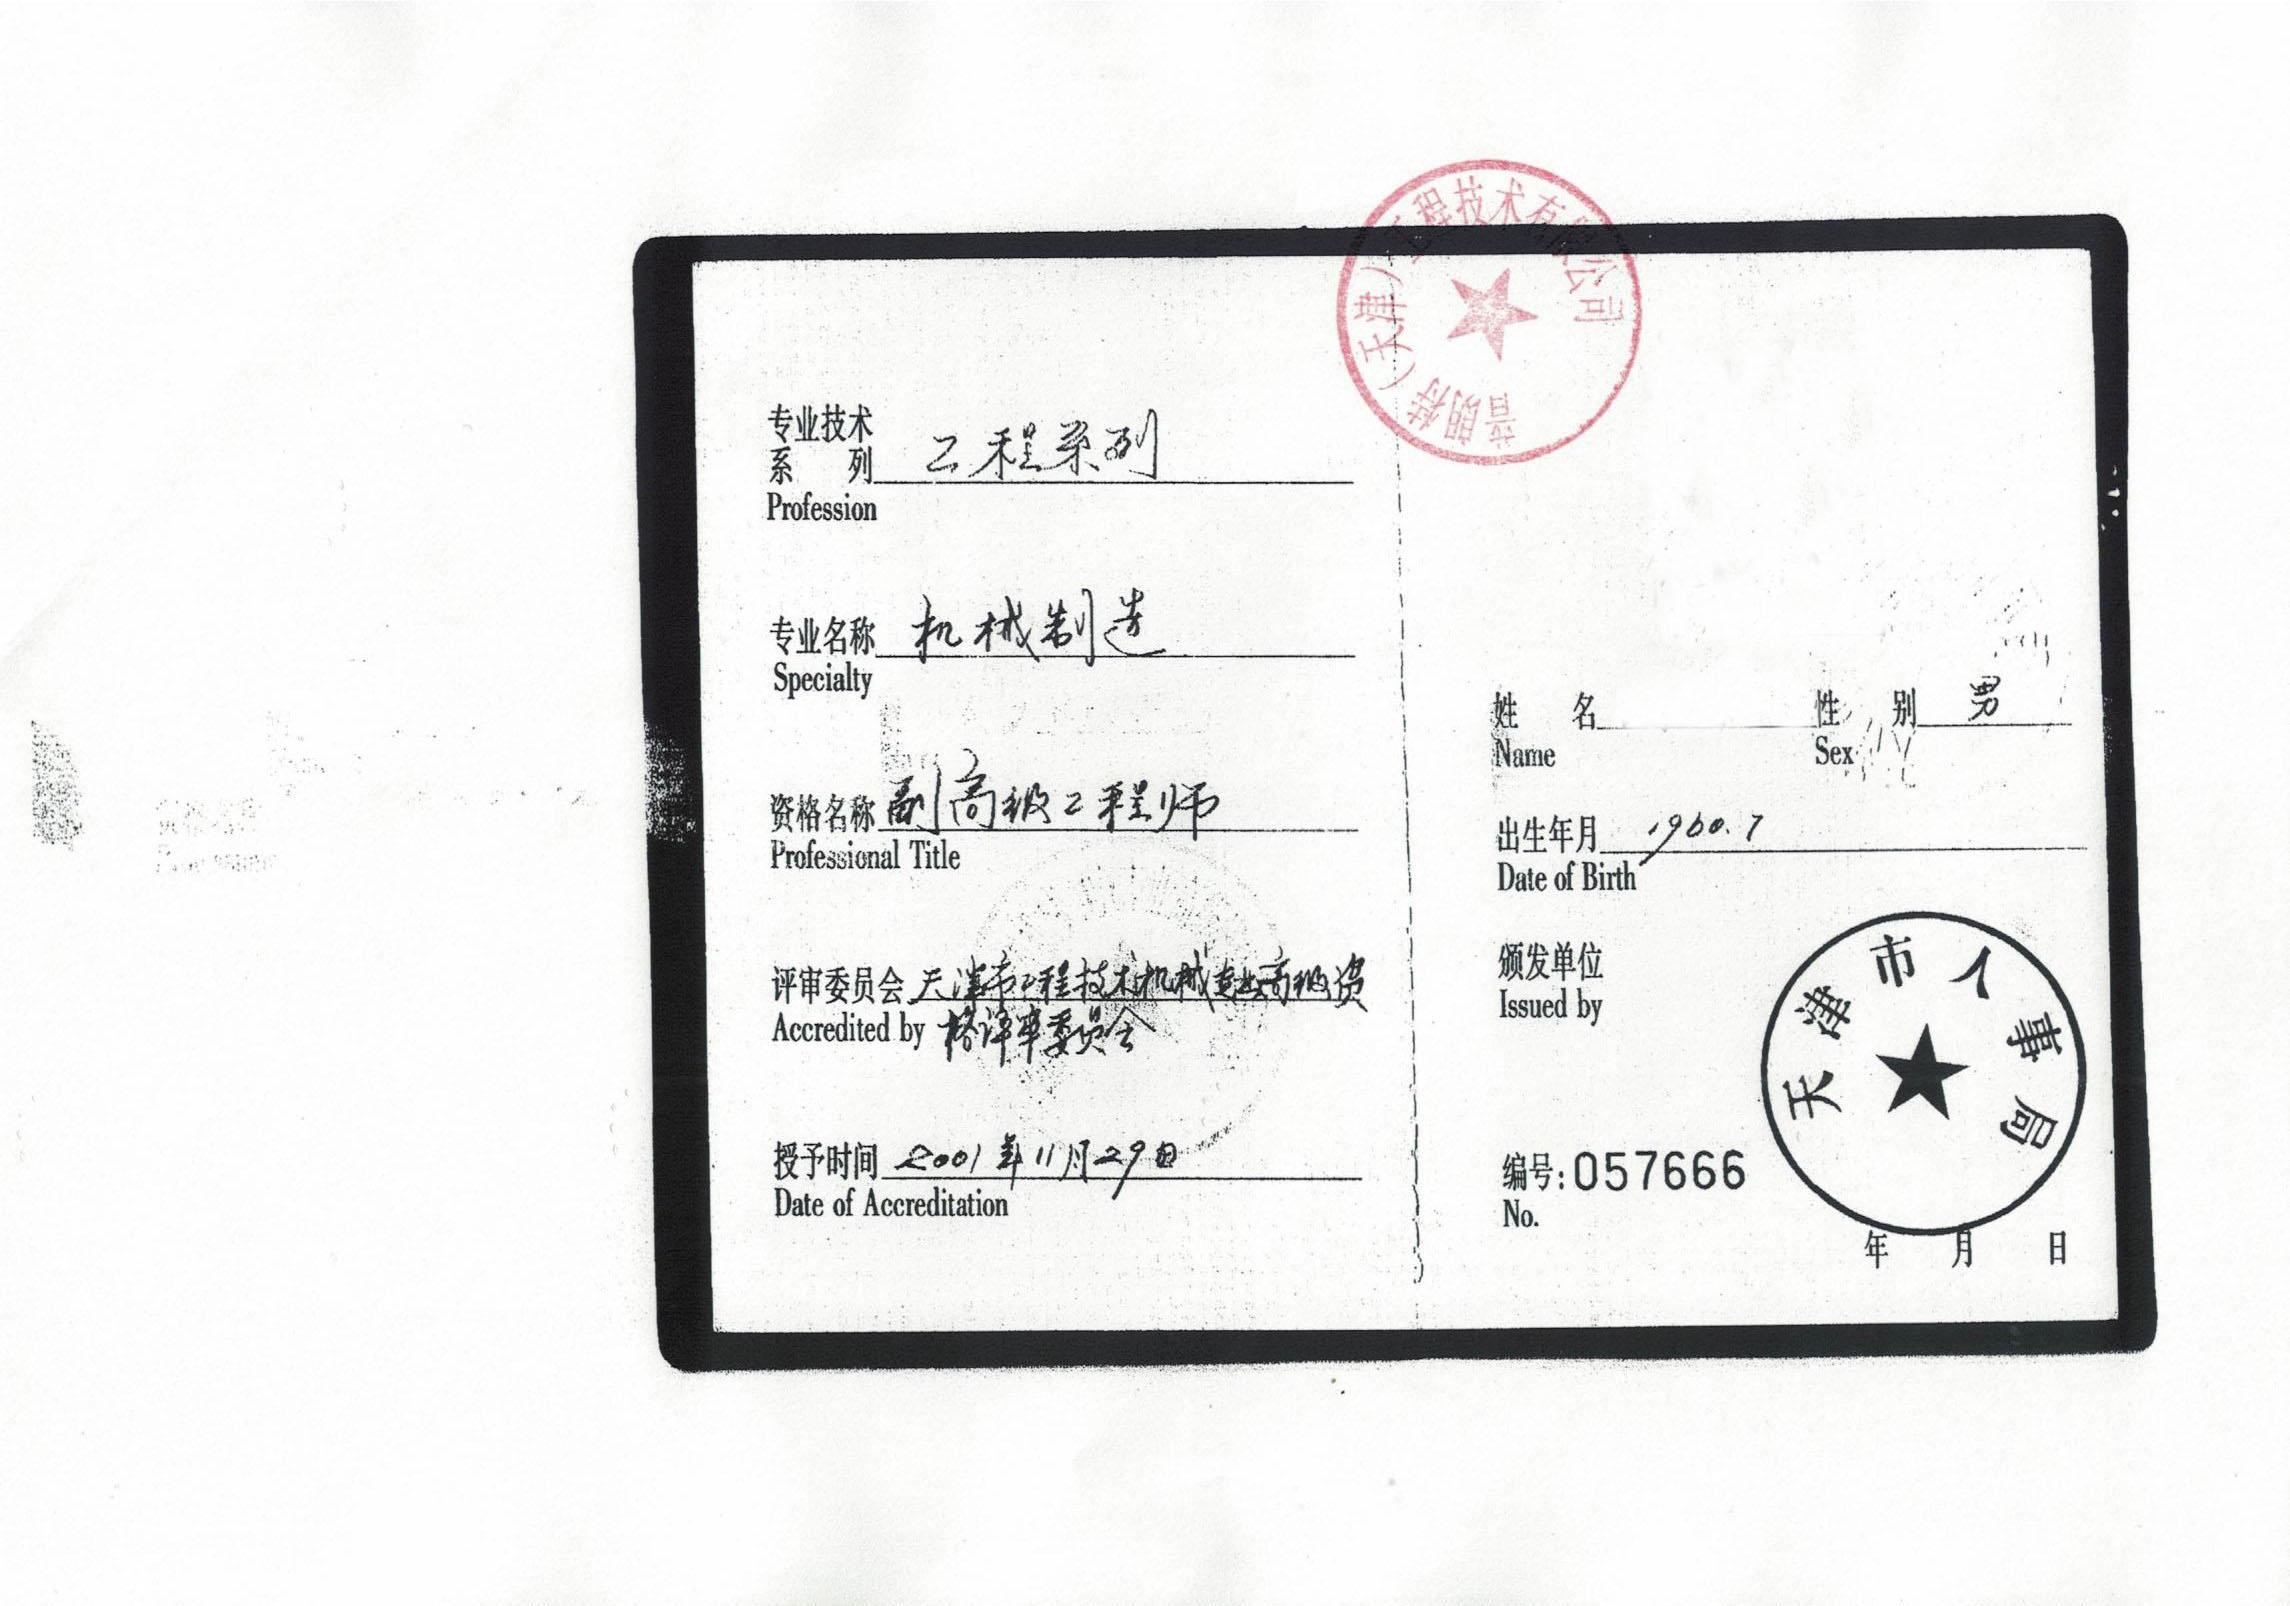 专业技术
系 列 工程系列
Profession
专业名称 机械制造
Specialty
资格名称 副高级工程师
Professional Title
评审委员会 天津市工程技术机械专业高级资
Accredited by 格评审委员会
授予时间 2001年11月29日
Date of Accreditation
(天津)工程技术有限公司
姓 名 性 别 男
Name Sex
出生年月 1960.7
Date of Birth
颁发单位
Issued by
天津市人事局
编号:057666
No.
年 月 日